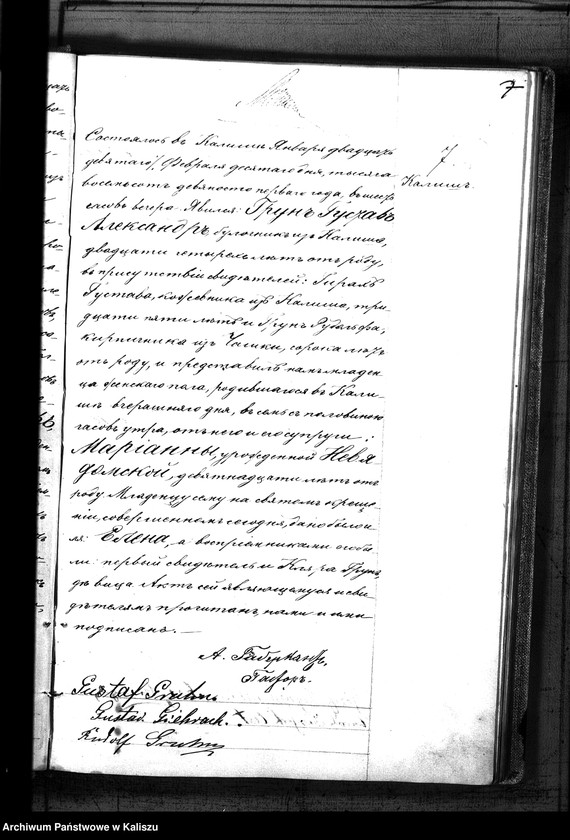 7
7
Калишъ.
Состоялось въ Калишѣ Января двадцать
девятаго /. Февраля десятаго дня, тысяча
восемьсотъ девяносто перваго года, въ шесть
часовъ вечера. Явился Грунъ Густавъ
Александръ булочникъ изъ Калиша,
двадцати четырехъ лѣтъ отъ роду,
въ присутствіи свидѣтелей:
Густава, кожевника изъ Калиша, три-
дцати пяти лѣтъ и Грунъ Рудольфа,
кирпичника изъ сорока лѣтъ
отъ роду, и представилъ намъ младен-
ца женскаго пола, родившагося въ Кали-
шѣ вчерашняго дня, въ семь съ половиною
часовъ утра, отъ него и его супруги:
Маріанны, урожденной Невя-
домской, девятнадцати лѣтъ отъ
роду Младенцу сему на святомъ креще-
ніи, совершенномъ сегодня, дано было и-
мя: Елена, а воспріемниками его бы-
ли: первый свидѣтель и Кляра Грунъ,
дѣвица Актъ сей являющемуся и сви-
дѣтелямъ прочитанъ, нами и ими
подписанъ. —
А. Габеркантъ,
Пасторъ.
Gustaf Gruhn.
Gustav
Rudolf Gruhn
Archiwum Państwowe w Kaliszu